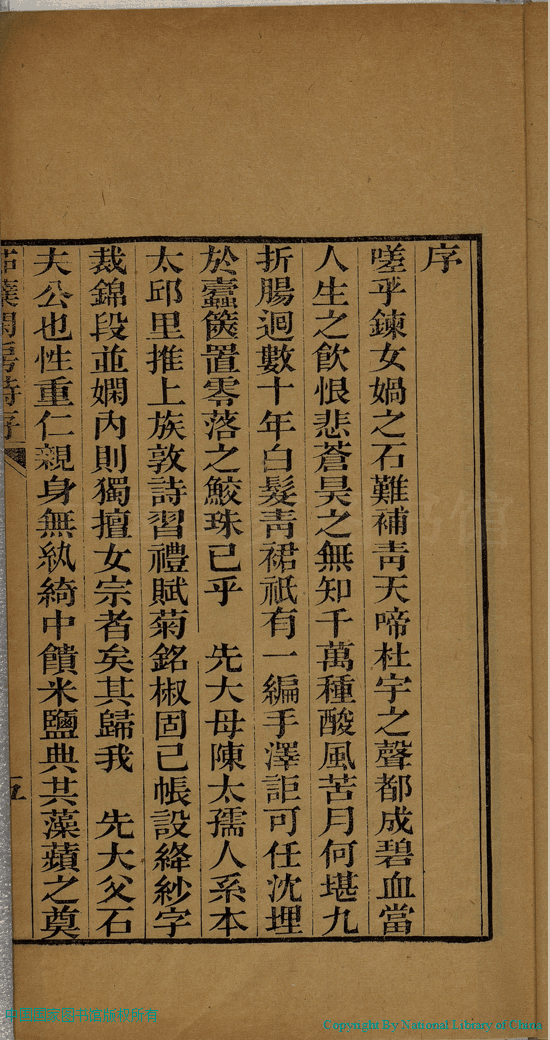 序
嗟乎鍊女媧之石難補靑天啼杜宇之聲都成碧血當
人生之飮恨悲蒼昊之無知千萬種酸風苦月何堪九
折腸迴數十年白髮靑裙祇有一編手澤詎可任沈埋
於蠹篋置零落之鮫珠已乎　先大母陳太孺人系本
太邱里推上族敦詩習禮賦菊銘椒固已帳設絳紗字
裁錦段並嫻內則獨擅女宗者矣其歸我　先大父石
夫公也性重仁親身無紈綺中饋米鹽典共藻蘋之奠
序
五
中国国家图书馆版权所有
Copyright By National Library of China